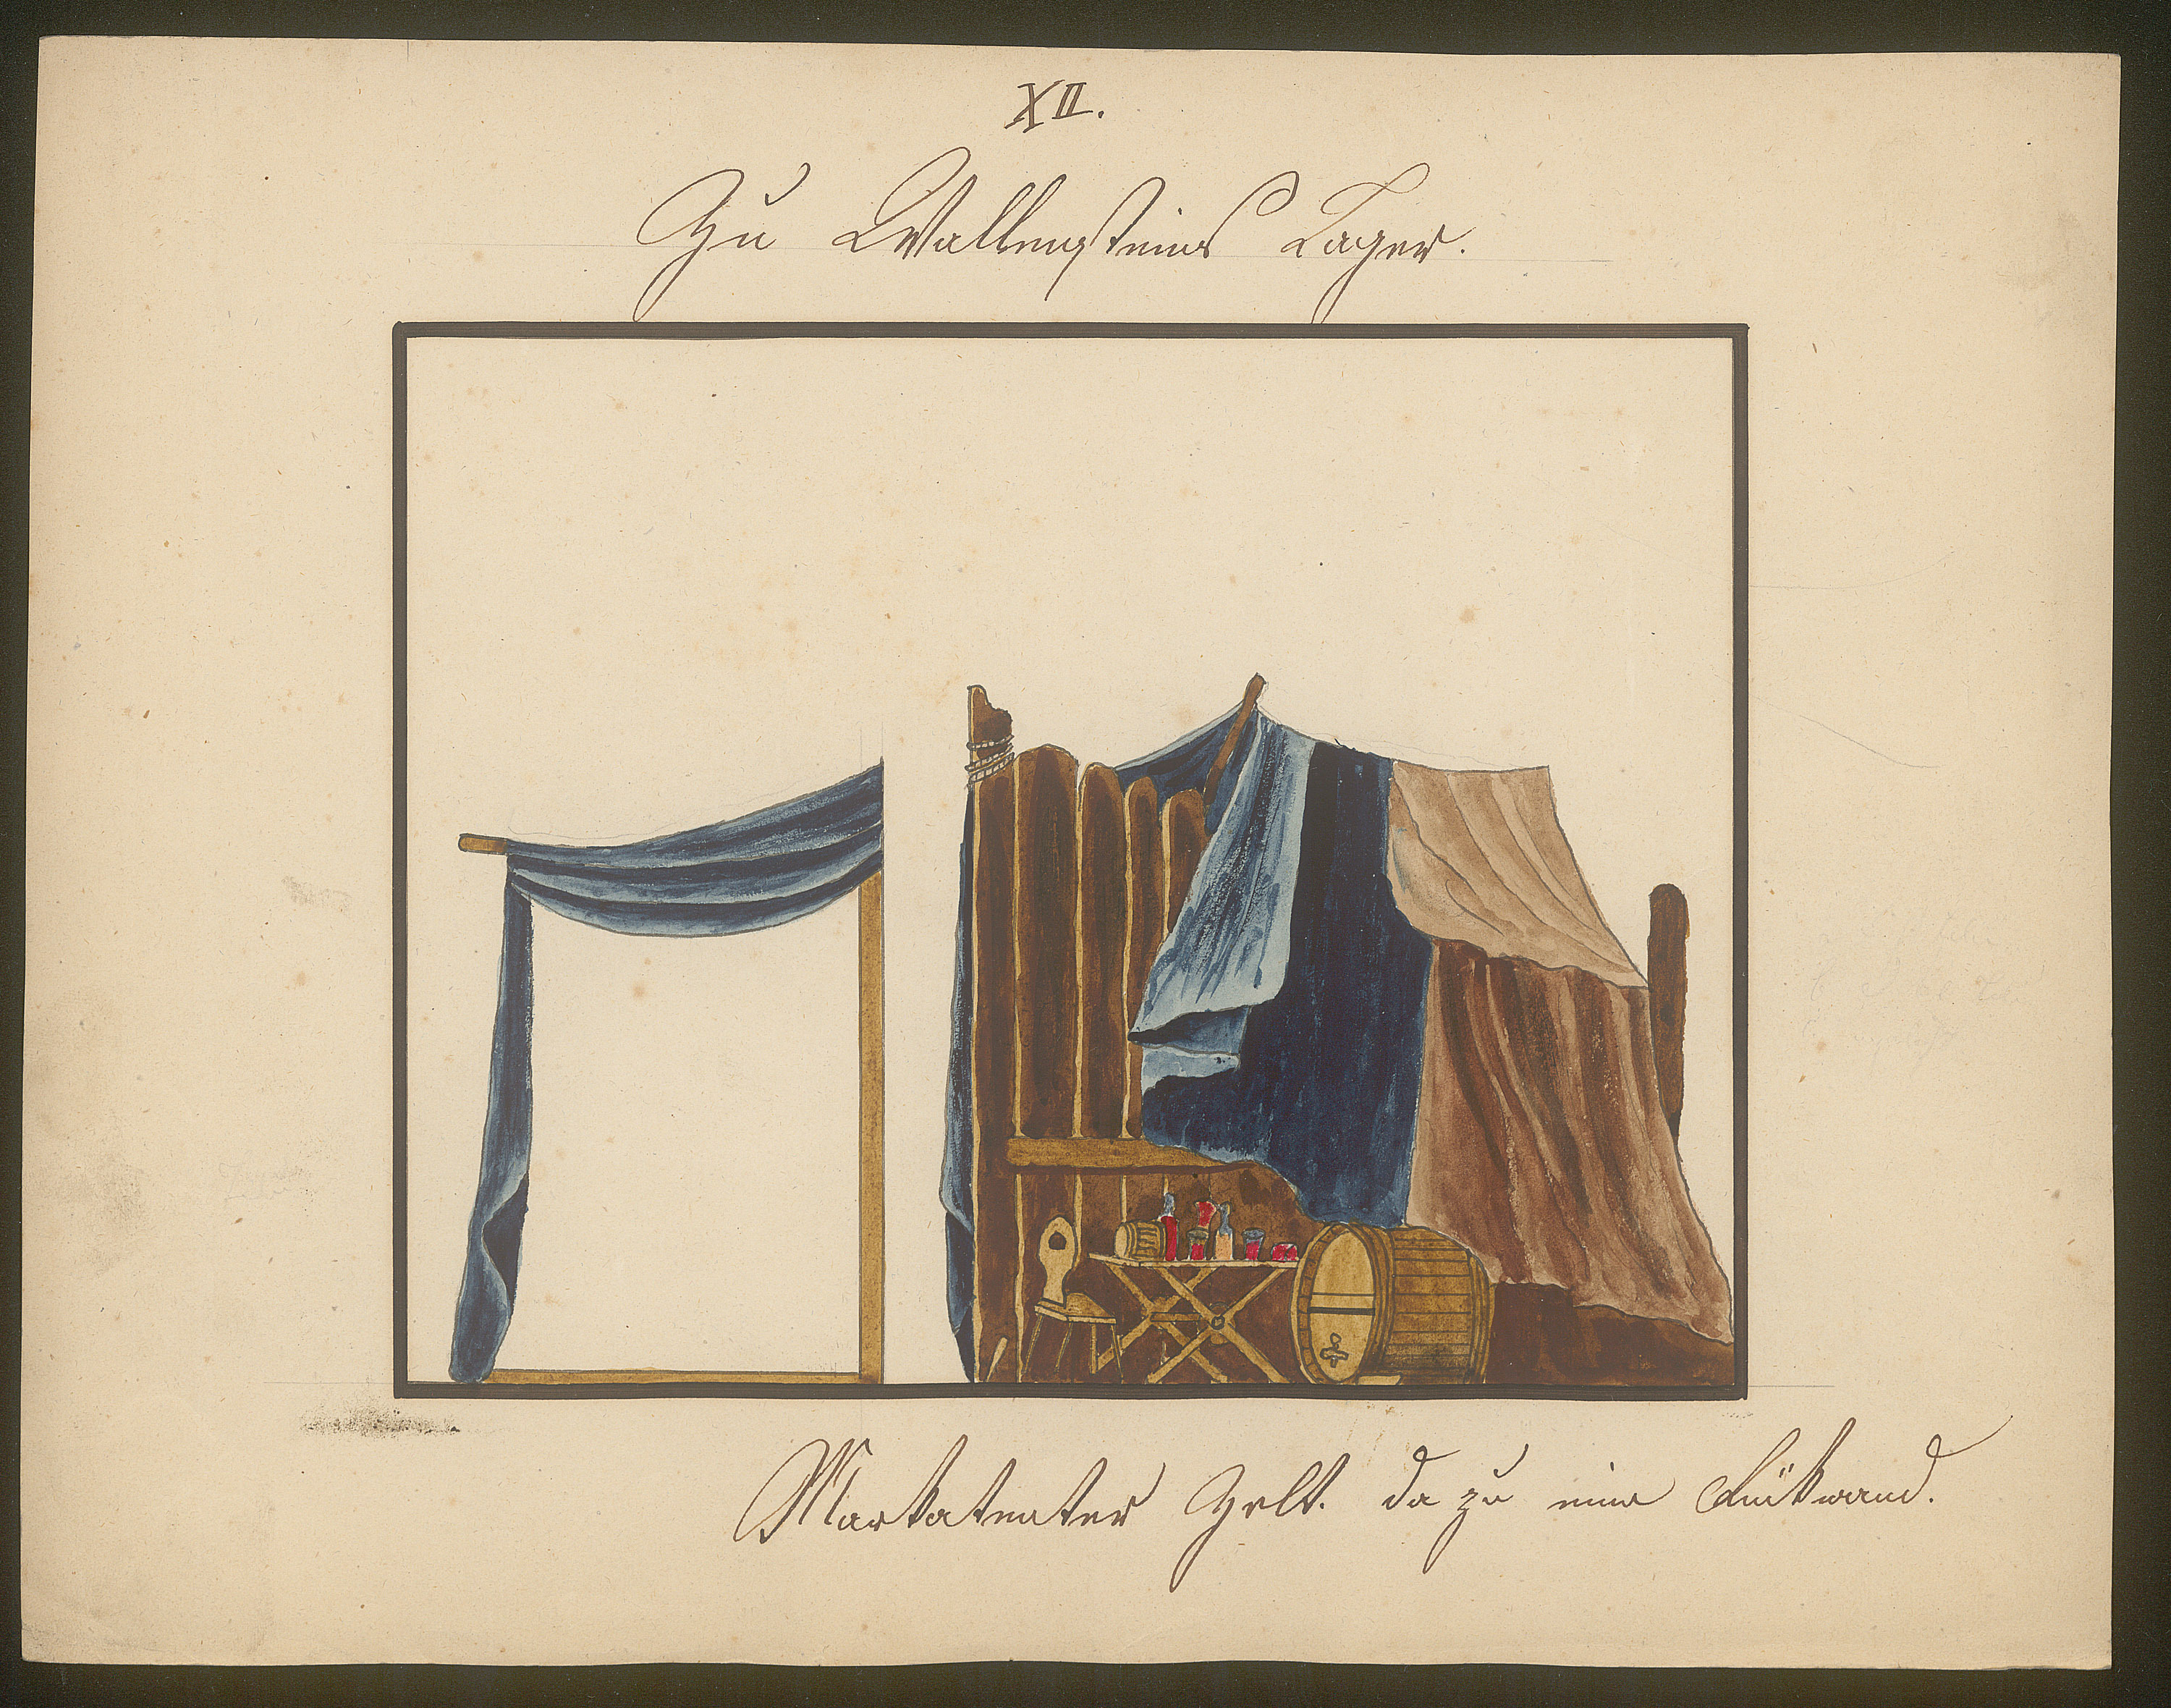 XII.
Zu Wallensteins Lager.
Marketenter Zelt. da zu eine Rükwand.